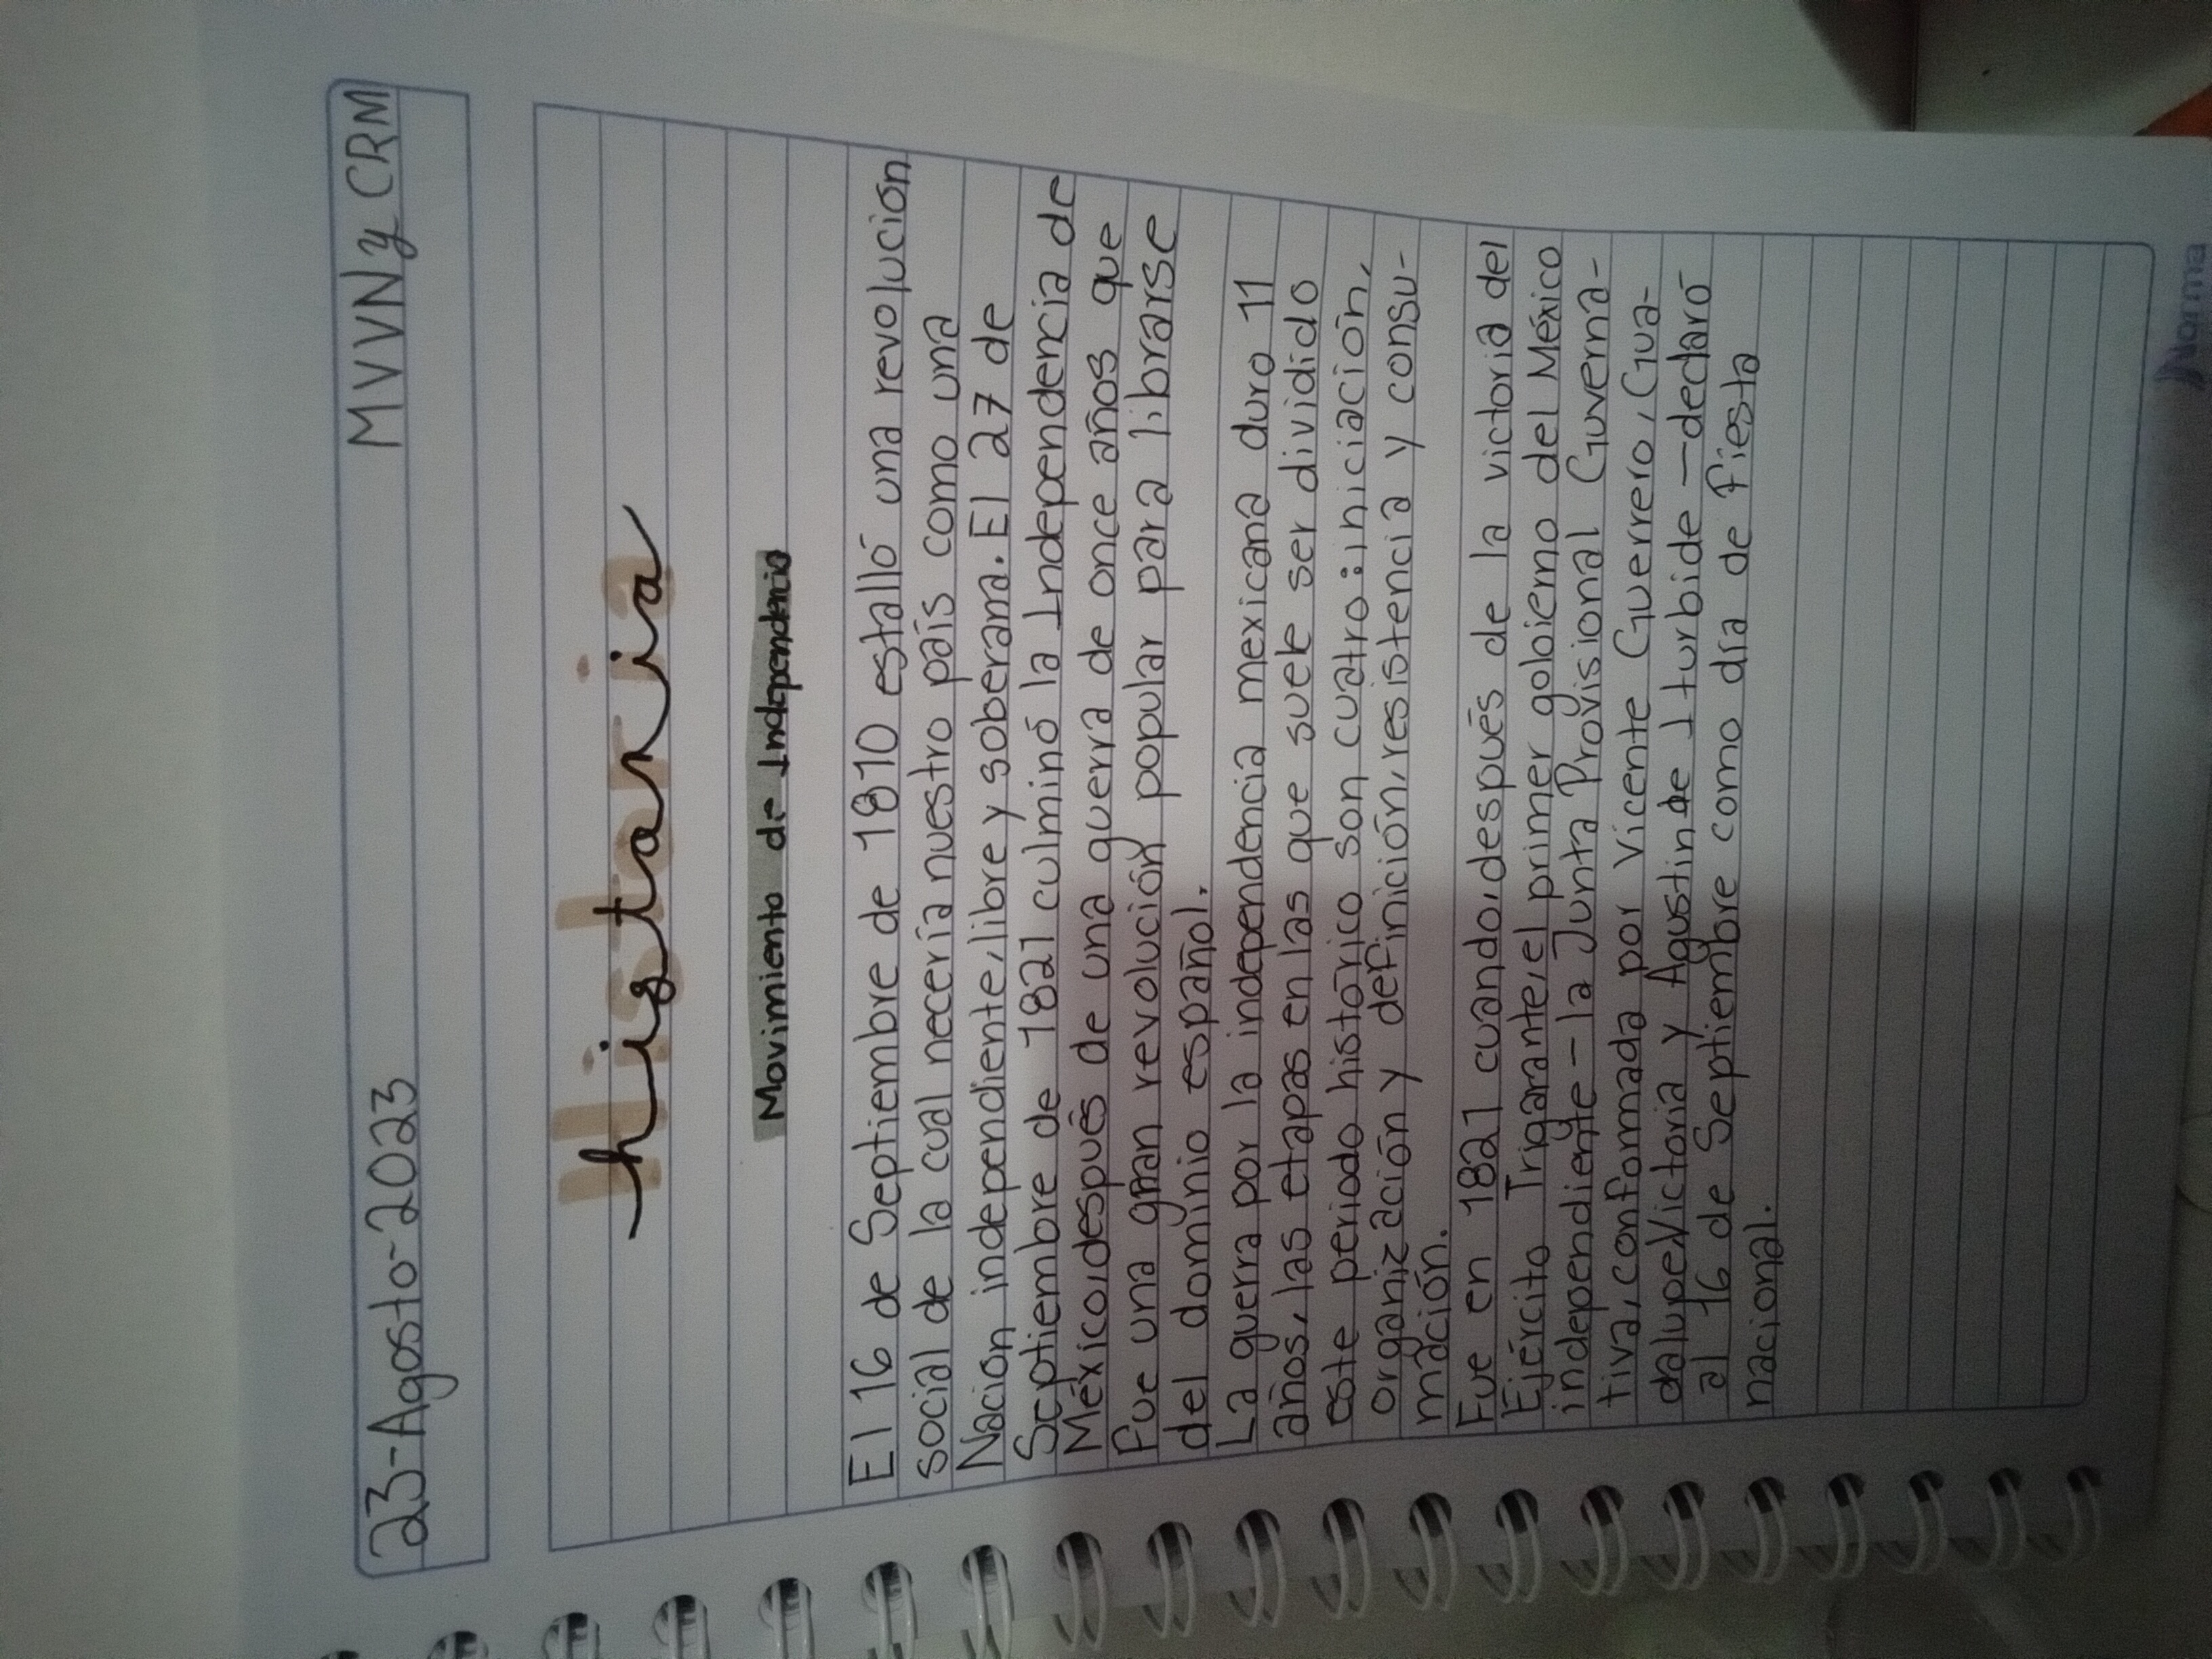 23-Agosto-2023 MVVNyCRM
historia
Movimiento de Independencia
El 16 de Septiembre de 1810 estalló una revolución
social de la cual necería nuestro país como una
Nación independiente, libre y soberana. El 27 de
Septiembre de 1821 culminó la Independencia de
México, después de una guerra de once años que
Fue una gran revolución popular para librarse
del dominio español.
La guerra por la independencia mexicana duro 11
años, las etapas en las que suele ser dividido
este periodo historico son cuatro: iniciación,
organización y definición, resistencia y consu-
mación.
Fue en 1821 cuando, después de la victoria del
Ejército Trigarante, el primer gobierno del México
independiente - la Junta Provisional Guverna-
tiva, conformada por Vicente Guerrero, Gua-
dalupe Victoria y Agustin de Iturbide - declaró
al 16 de Septiembre como día de fiesta
nacional.
Norma